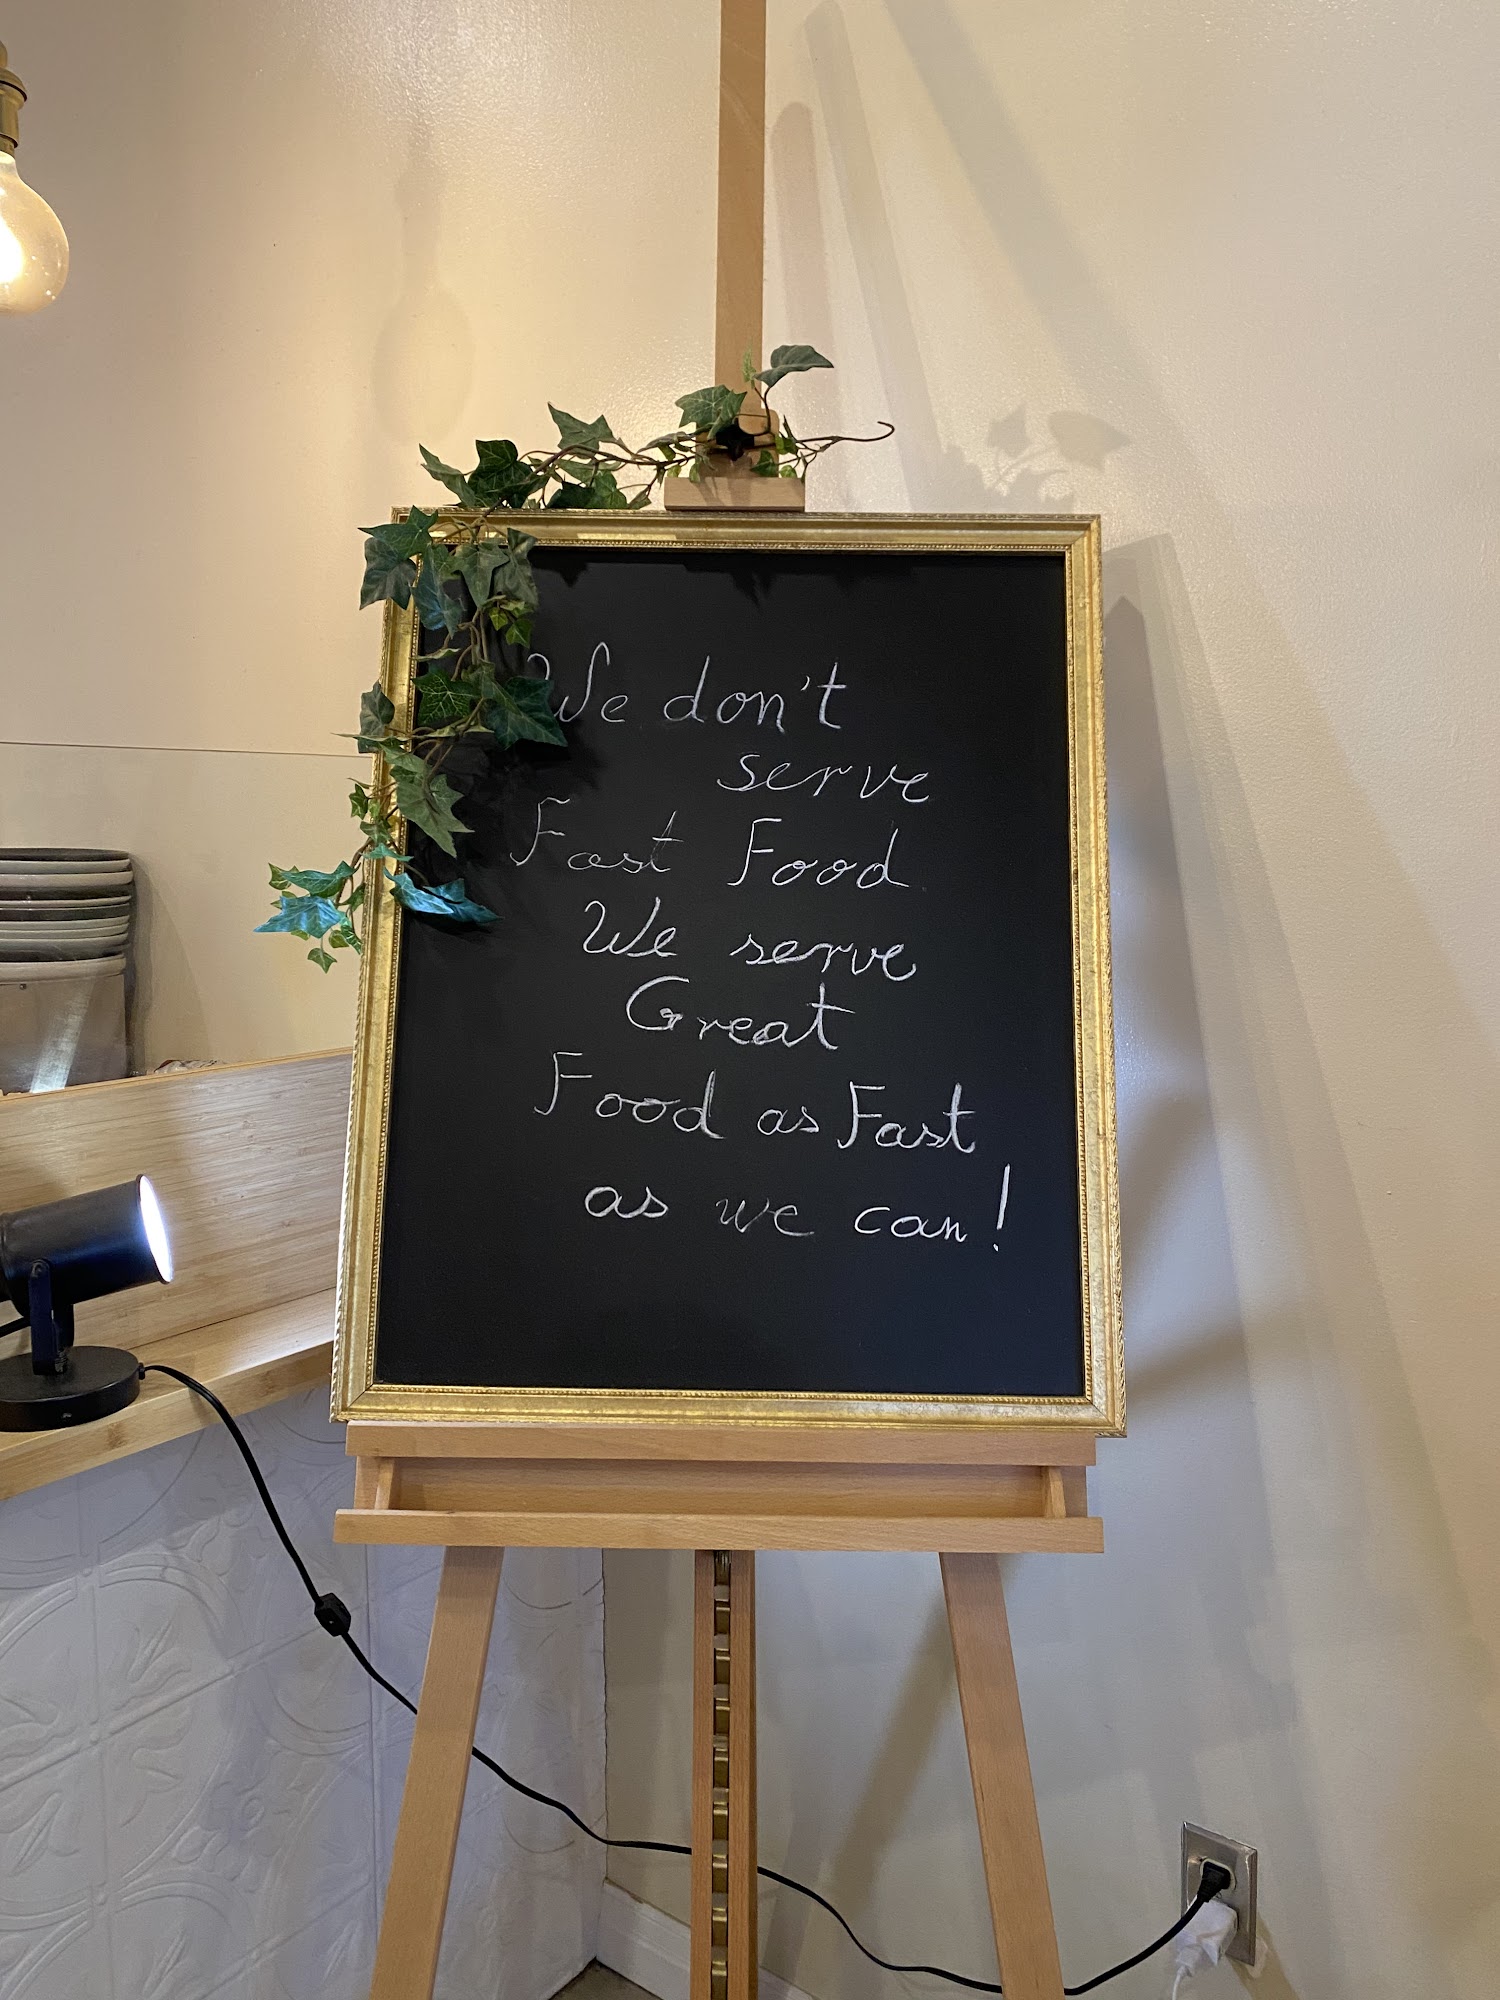 We don't
serve
Fast Food
We serve
Great
Food as Fast
as we can!